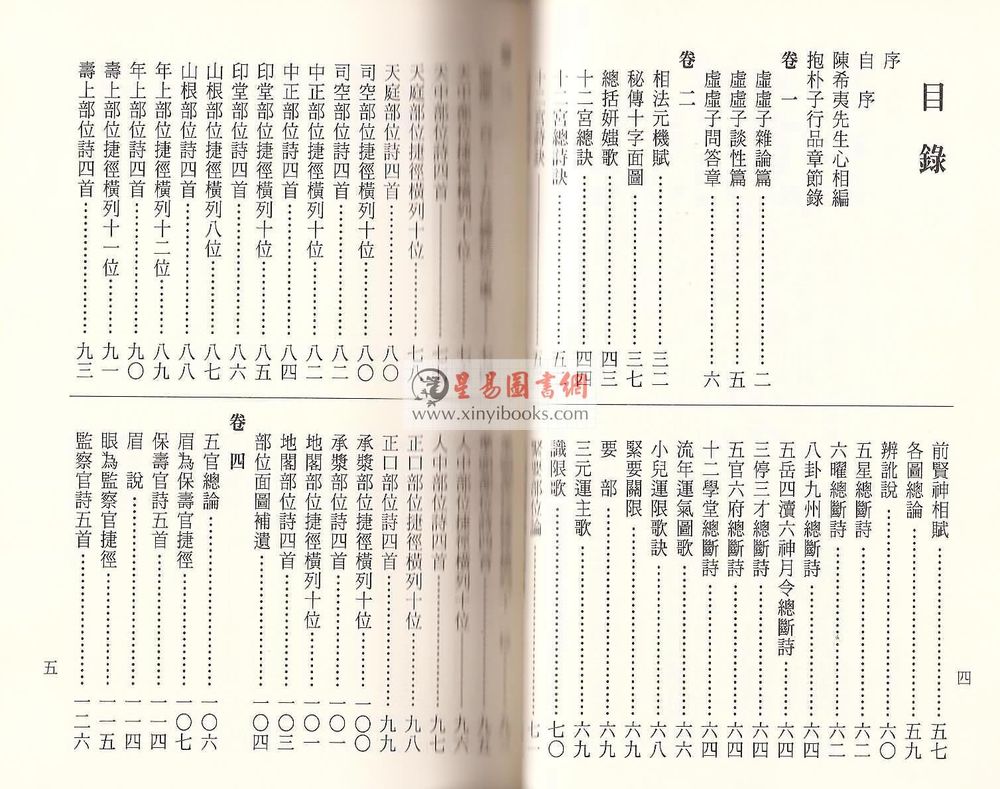 目錄
序
自序
陳希夷先生心相編
抱朴子行品章節錄
卷一
虛虛子雜論篇……二
虛虛子談性篇……五
虛虛子問答章……六
卷二
相法元機賦……三二
秘傳十字面圖……三七
總括妍媸歌……四三
十二宮總訣……四四
十二宮總詩訣……五
前賢神相賦……五七
各圖總論……五九
辨訛說……六〇
五星總斷詩……六二
六曜總斷詩……六二
八卦九州總斷詩……六二
五岳四瀆六神月令總斷詩……六四
三停三才總斷詩……六四
五官六府總斷詩……六四
十二學堂總斷詩……六四
流年運氣圖歌……六六
小兒運限歌訣……六八
緊要關限……六九
要部……六九
三元運主歌……六九
識限歌……七〇
緊要部位論……七一
四
天中部位捷徑橫列十位
天中部位詩四首……七
天庭部位捷徑橫列十位……七八
天庭部位詩四首……八〇
司空部位捷徑橫列十位……八〇
司空部位詩四首……八二
中正部位捷徑橫列十位……八二
中正部位詩四首……八四
印堂部位捷徑橫列十位……八五
印堂部位詩四首……八六
山根部位捷徑橫列八位……八七
山根部位詩四首……八八
年上部位捷徑橫列十二位……八九
年上部位詩四首……九〇
壽上部位捷徑橫列十一位……九一
壽上部位詩四首……九三
人中部位捷徑橫列十位……九六
人中部位詩四首……九七
正口部位捷徑橫列十位……九八
正口部位詩四首……九九
承漿部位捷徑橫列十位……一〇〇
承漿部位詩四首……一〇一
地閣部位捷徑橫列十位……一〇一
地閣部位詩四首……一〇三
部位面圖補遺……一〇四
卷四
五官總論……一〇六
眉為保壽官捷徑……一〇七
保壽官詩五首……一一四
眉說……一一四
眼為監察官捷徑……一一五
監察官詩五首……一二六
五
星易圖書網
www.xinyibooks.com